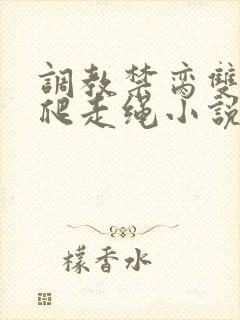 調教禁脔雙
爬走绳小説
檬香水